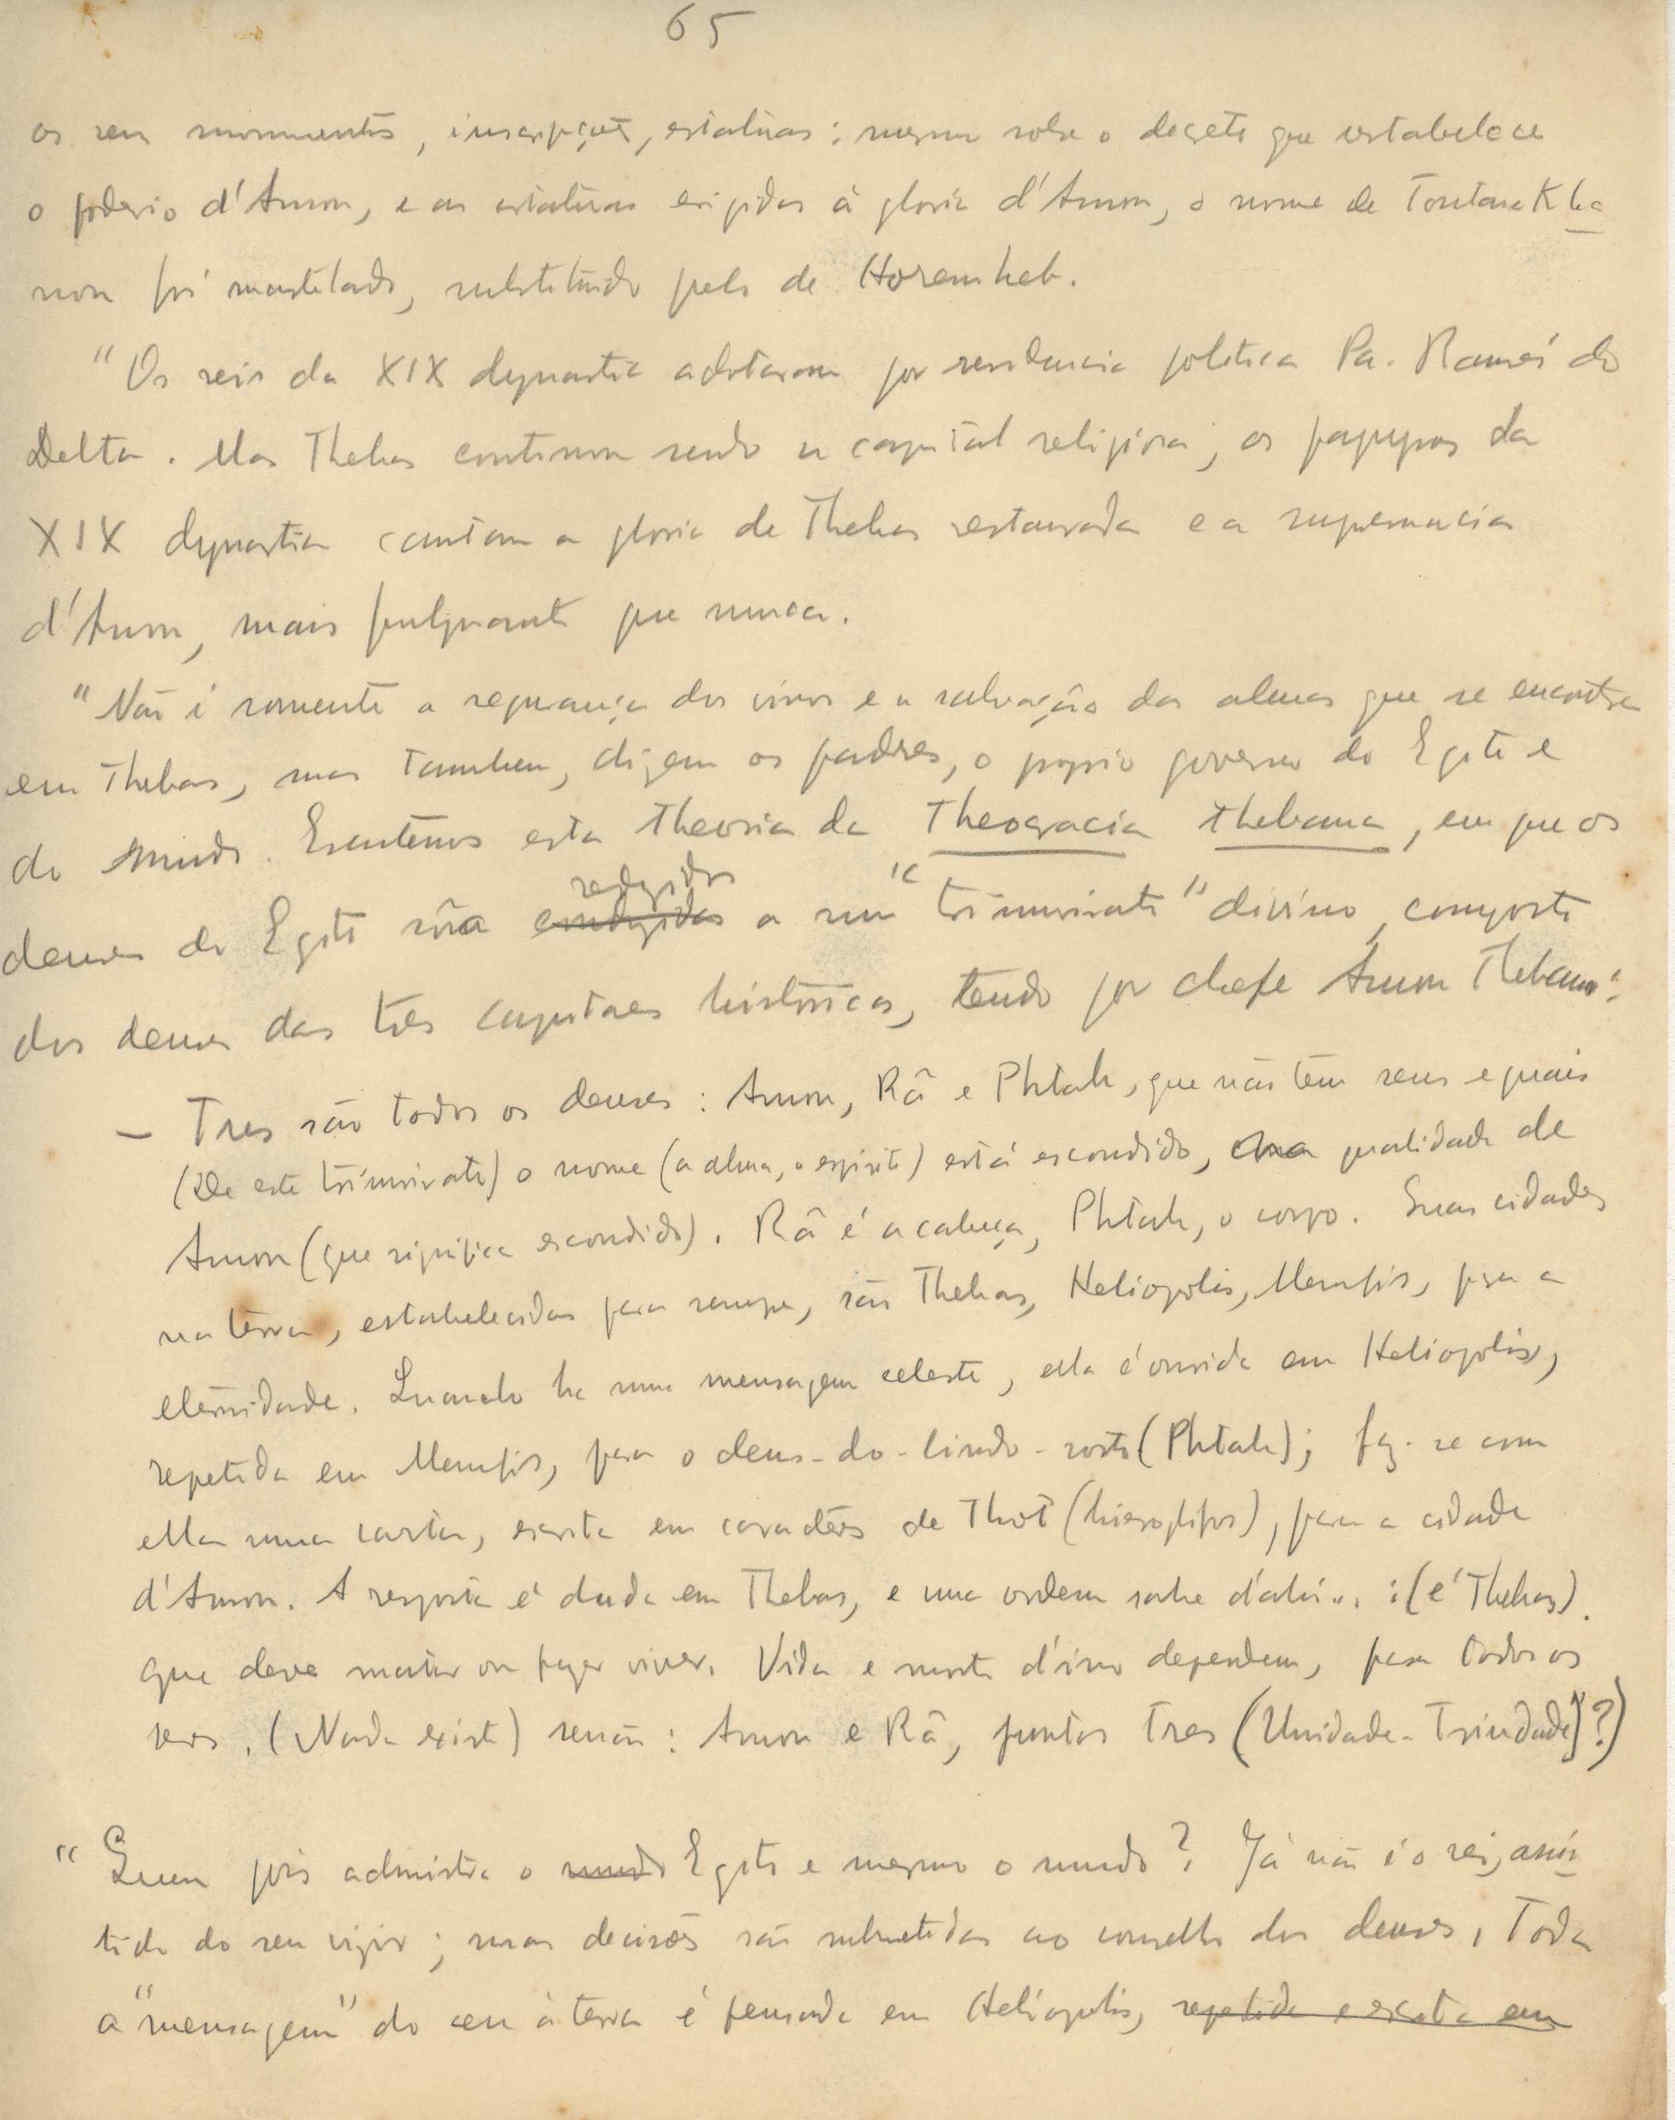 65
os seus monumentos, inscripções, estatuas; mesmo sobre o decreto que estabelece
o poderio d'Amon, e as estatuas erigidas á gloria d'Amon, o nome de Toutanekha
mon foi martelado, substituido pelo de Horemheb.
"Os reis da XIX dynastia adotaram por residencia politica Pa-Ramsés do
Delta. Mas Thebas continua sendo a capital religiosa; os papyros da
XIX dynastia cantam a gloria de Thebas restaurada e a supremacia
d'Amon, mais fulgurante que nunca.
"Não é somente a segurança dos vivos e a salvação das almas que se encontra
em Thebas, mas tambem, dizem os padres, o proprio governo do Egito e
do mundo. Escutemos esta theoria da Theocracia thebana, em que os
redzidos
deuses do Egito são conduzidos a um "triumvirato" divino, composto
dos deuses das tres capitaes históricas, tendo por chefe Amon Thebano:
— Tres são todos os deuses: Amon, Râ e Phtah, que não têm seus eguais
(De este triumvirato) o nome (a alma, o espirito) está escondido, na qualidade de
Amon (que significa escondido). Râ é a cabeça, Phtah, o corpo. Suas cidades
na terra, estabelecidas para sempre, são Thebas, Heliopolis, Memfis, para a
eternidade. Quando ha uma mensagem celeste, ella é ouvida em Heliopolis,
repetida em Memfis, para o deus-do-lindo-rosto (Phtah); faz-se com
ella uma carta, escrita em caractéres de Thot (hieroglifos), para a cidade
d'Amon. A resposta é dada em Thebas, e uma ordem sahe d'ahi... : (é Thebas).
que deve matar ou fazer viver. Vida e morte d'isso dependem, para todos os
seres. (Nada existe) senão: Amon e Râ, juntos tres (Unidade-Trindade?)
"Quem pois administra o mundo Egito e mesmo o mundo? Já não é o rei, assis
tido do seu vizir; suas decisões são submetidas ao conselho dos deuses. Toda
a "mensagem" do ceu á terra é pensada em Heliopolis, repetida e escrita em